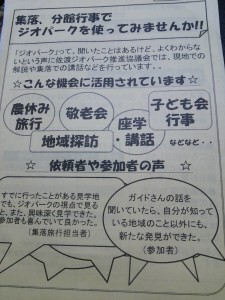 集落、分館行事で
ジオパークを使ってみませんか!!
「ジオパーク」って、聞いたことはあるけど、よくわからな
いという声に佐渡ジオパーク推進協議会では、現地での
解説や集落での講話などを行っています。
☆こんな機会に活用されています☆
農休み
旅行
敬老会
子ども会
行事
地域探訪
座学
・講話
などなど・・
☆ 依頼者や参加者の声 ☆
すでに行ったことがある見学地
でも、ジオパークの視点で見る
と、また、興味深く見学できた。
参加者も喜んでいて良かった。
(集落旅行担当者)
ガイドさんの話を
聞いていたら、自分が知って
いる地域のこと以外にも、
新たな発見ができた。
(参加者)